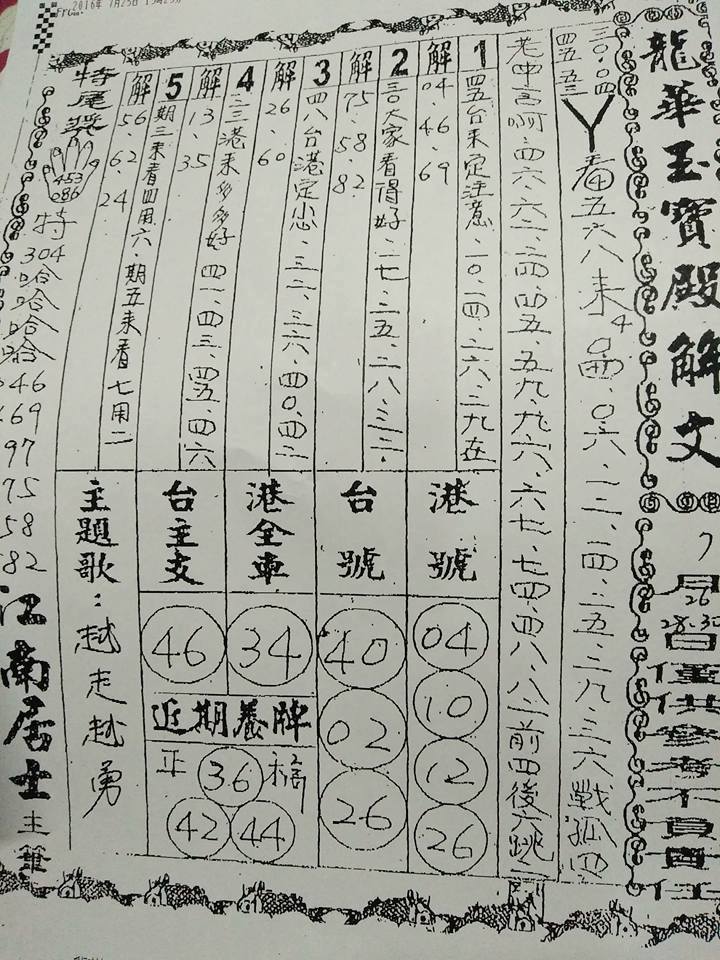 2016年 7月25日
龍華玉寶殿解文
7月26
28.30
日僅供參考不負責任
三○.○四
四五 五三
看五六八来
老中言啊.四六.六二.二四.四五.五九.九六.六七.七四.四八.八二前四後六跳
1 四五台来定注意.一○.二四.二六.二九在
解 04 46 69
2 三○大家看得好.二七.三五.二八.三二.
解 75.58.82
3 四八台港定小心.三二.三六.四○.四二
解 26.60
4 二三港来多多好 四一.四三.四五.四六
解 13.35
5 期三来看四用六.期五来看七用二
解 56.62.24
港號
04
10
12
26
台號
40
02
26
港全車
34
台主支
46
近期養牌
正 36 福
42 44
主題歌:越走越勇
特尾獎
453
086
特
304
哈哈哈哈
46
69
97
75
58
82
江南居士主筆